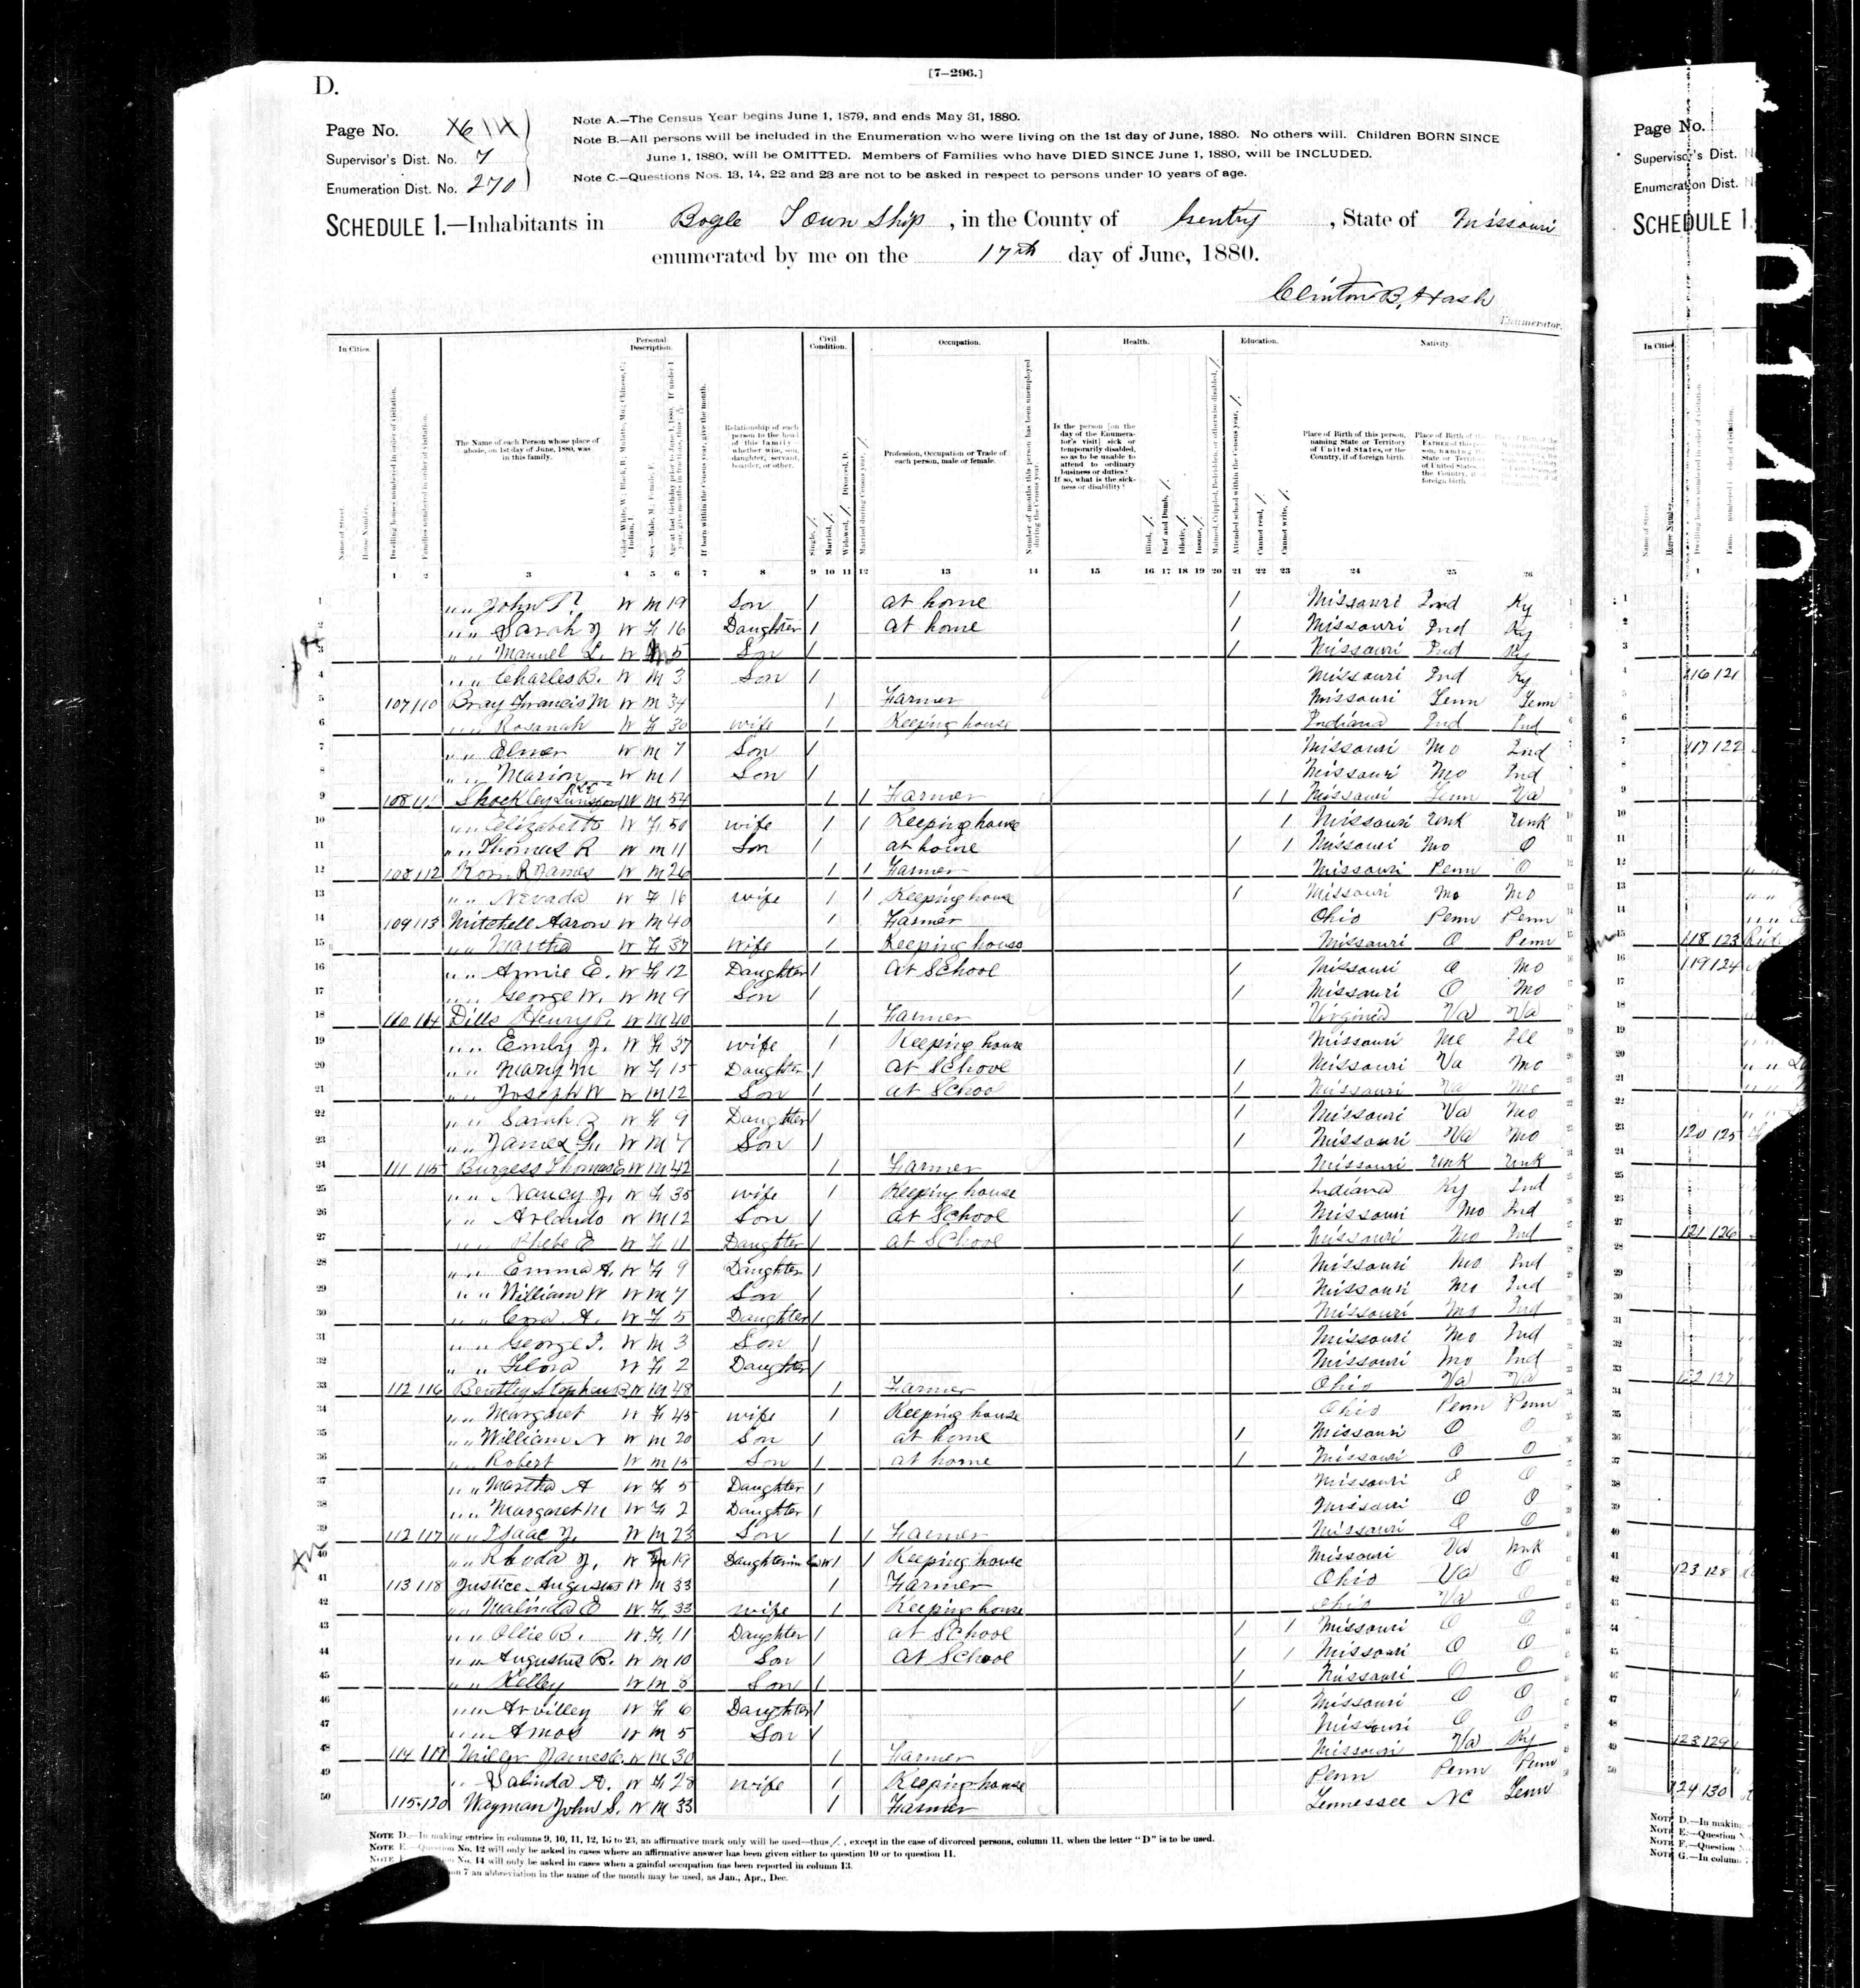 D.
[7–296.]
Page No.
Supervisor's Dist. No. 7
Enumeration Dist. No. 270
Note A.—The Census Year begins June 1, 1879, and ends May 31, 1880.
Note B.—All persons will be included in the Enumeration who were living on the 1st day of June, 1880. No others will. Children BORN SINCE
June 1, 1880, will be OMITTED. Members of Families who have DIED SINCE June 1, 1880, will be INCLUDED.
Note C.—Questions Nos. 13, 14, 22 and 23 are not to be asked in respect to persons under 10 years of age.
SCHEDULE 1.—Inhabitants in Bogle Town Ship, in the County of Gentry, State of Missouri
enumerated by me on the 17th day of June, 1880.
Clinton B. Hash
Enumerator.
In Cities. Personal Description. Civil Condition. Occupation. Health. Education. Nativity.
The Name of each Person whose place of abode, on 1st day of June, 1880, was in this family.
Relationship of each person to the head of this family—whether wife, son, daughter, servant, boarder, or other.
Profession, Occupation or Trade of each person, male or female.
Is the person [on the day of the Enumerator's visit] sick or temporarily disabled, so as to be unable to attend to ordinary business or duties? If so, what is the sickness or disability?
Place of Birth of this person, naming State or Territory of United States, or the Country, if of foreign birth.
1 2 3 4 5 6 7 8 9 10 11 12 13 14 15 16 17 18 19 20 21 22 23 24 25 26
1 " " John W M 19 Son / at home / Missouri Ind Ky
2 " " Sarah J W F 16 Daughter / at home / Missouri Ind Ky
3 " " Manuel L. W M 5 Son / / Missouri Ind Ky
4 " " Charles B. W M 3 Son / Missouri Ind Ky
5 107 110 Bray Francis M W M 34 / Farmer Missouri Tenn Tenn
6 " " Rosanah W F 30 wife / Keeping house Indiana Ind Ind
7 " " Elmer W M 7 Son / Missouri Mo Ind
8 " " Marion W M 1 Son / Missouri Mo Ind
9 108 111 Shockley W M 54 / 1 Farmer / / Missouri Tenn Va
10 " " Elizabeth W F 50 wife / 1 Keeping house / Missouri Unk Unk
11 " " Thomas R W M 11 Son / at home / / Missouri Mo O
12 108 112 James W M 26 / 1 Farmer Missouri Penn O
13 " " Nevada W F 16 wife / 1 Keeping house / Missouri Mo Mo
14 109 113 Mitchell Aaron W M 40 / Farmer Ohio Penn Penn
15 " " Martha W F 37 wife / Keeping house Missouri O Penn
16 " " Annie E. W F 12 Daughter / At School / Missouri O Mo
17 " " George W. W M 9 Son / / Missouri O Mo
18 110 114 Dills Henry P. W M 40 / Farmer Virginia Va Va
19 " " Emily J. W F 37 wife / Keeping house Missouri Ill
20 " " Mary M W F 15 Daughter / at School / Missouri Va Mo
21 " " Joseph W W M 12 Son / at School / Missouri Va Mo
22 " " Sarah W F 9 Daughter / / Missouri Va Mo
23 " " James W M 7 Son / / Missouri Va Mo
24 111 115 Burgess Thomas W M 42 / Farmer Missouri Unk Unk
25 " " Nancy J. W F 35 wife / Keeping house Indiana Ky Ind
26 " " Arlando W M 12 Son / at School / Missouri Mo Ind
27 " " Phebe E W F 11 Daughter / at School / Missouri Mo Ind
28 " " Emma A. W F 9 Daughter / / Missouri Mo Ind
29 " " William W W M 7 Son / / Missouri Mo Ind
30 " " A. W F 5 Daughter / Missouri Mo Ind
31 " " George W M 3 Son / Missouri Mo Ind
32 " " Flora W F 2 Daughter / Missouri Mo Ind
33 112 116 Bentley Stephen W M 48 / Farmer Ohio Va Va
34 " " Margaret W F 45 wife / Keeping house Ohio Penn Penn
35 " " William N W M 20 Son / at home / Missouri O O
36 " " Robert W M 15 Son / at home / Missouri O O
37 " " Martha A W F 5 Daughter / Missouri O O
38 " " Margaret M W F 2 Daughter / Missouri O O
39 112 117 " " Isaac J. W M 23 Son / 1 Farmer Missouri O O
40 " " Rhoda J. W F 19 Daughter in Law / 1 Keeping house Missouri Va Unk
41 113 118 Justice Augustus W M 33 / Farmer Ohio Va O
42 " " Malinda E W F 33 wife / Keeping house Ohio Va O
43 " " Ollie B. W F 11 Daughter / at School / / Missouri O O
44 " " Augustus B. W M 10 Son / At School / / Missouri O O
45 " " Kelley W M 8 Son / / Missouri O O
46 " " Arvilley W F 6 Daughter / / Missouri O O
47 " " Amos W M 5 Son / Missouri O O
48 114 119 Miller James W M 30 / Farmer Missouri Va Ky
49 " Salinda A. W F 28 wife / Keeping house Penn Penn Penn
50 115 120 Wayman John S. W M 33 / Farmer Tennessee NC Tenn
Note D.—In making entries in columns 9, 10, 11, 12, 16 to 23, an affirmative mark only will be used—thus /, except in the case of divorced persons, column 11, when the letter "D" is to be used.
Note E.—Question No. 12 will only be asked in cases where an affirmative answer has been given either to question 10 or to question 11.
No. 14 will only be asked in cases when a gainful occupation has been reported in column 13.
7 an abbreviation in the name of the month may be used, as Jan., Apr., Dec.
Page No.
Supervisor's Dist.
Enumeration Dist.
SCHEDULE 1.
0140
In Cities.
116 121
117 122
118 123
119 124
120 125
121 126
122 127
123 128
123 129
124 130
Note D.—In making
Note E.—Question
Note F.—Question
Note G.—In colum